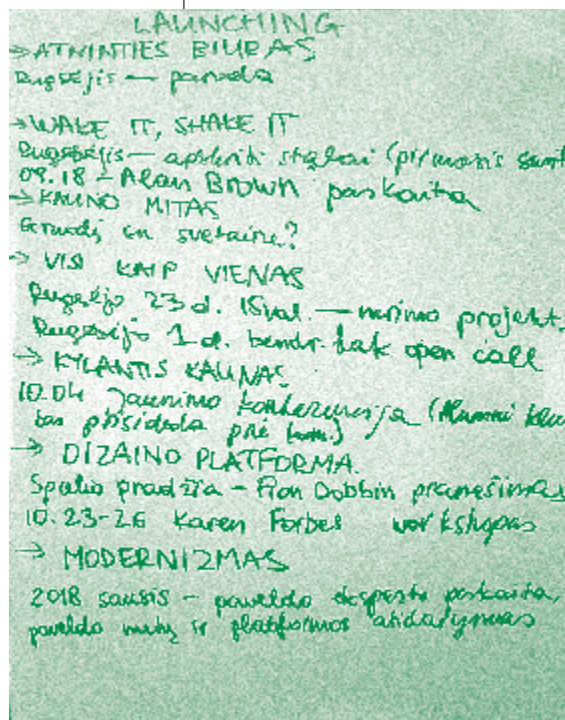 LAUNCHING
→ ATMINTIES BIURAS
Rugsėjis — paroda
→ WAKE IT, SHAKE IT
Rugsėjis — apskriti stalai (pirmasis
09.18 – Alan Brown paskaita
→ KAUNO MITAS
svetainė?
→ VISI KAIP VIENAS
Rugsėjo 23 d. 15val. — projekt.
Rugsėjo 1 d. bendr. open call
→ KYLANTIS KAUNAS
10.04 Jaunimo konferencija (Alumni
bas prisideda prie
→ DIZAINO PLATFORMA
Spalio pradžia – Dobbin pranešimas
10.23-26 Karen Forbes workshopas
→ MODERNIZMAS
2018 sausis – paveldo eksperto paskaita,
paveldo ir platformos atidarymas